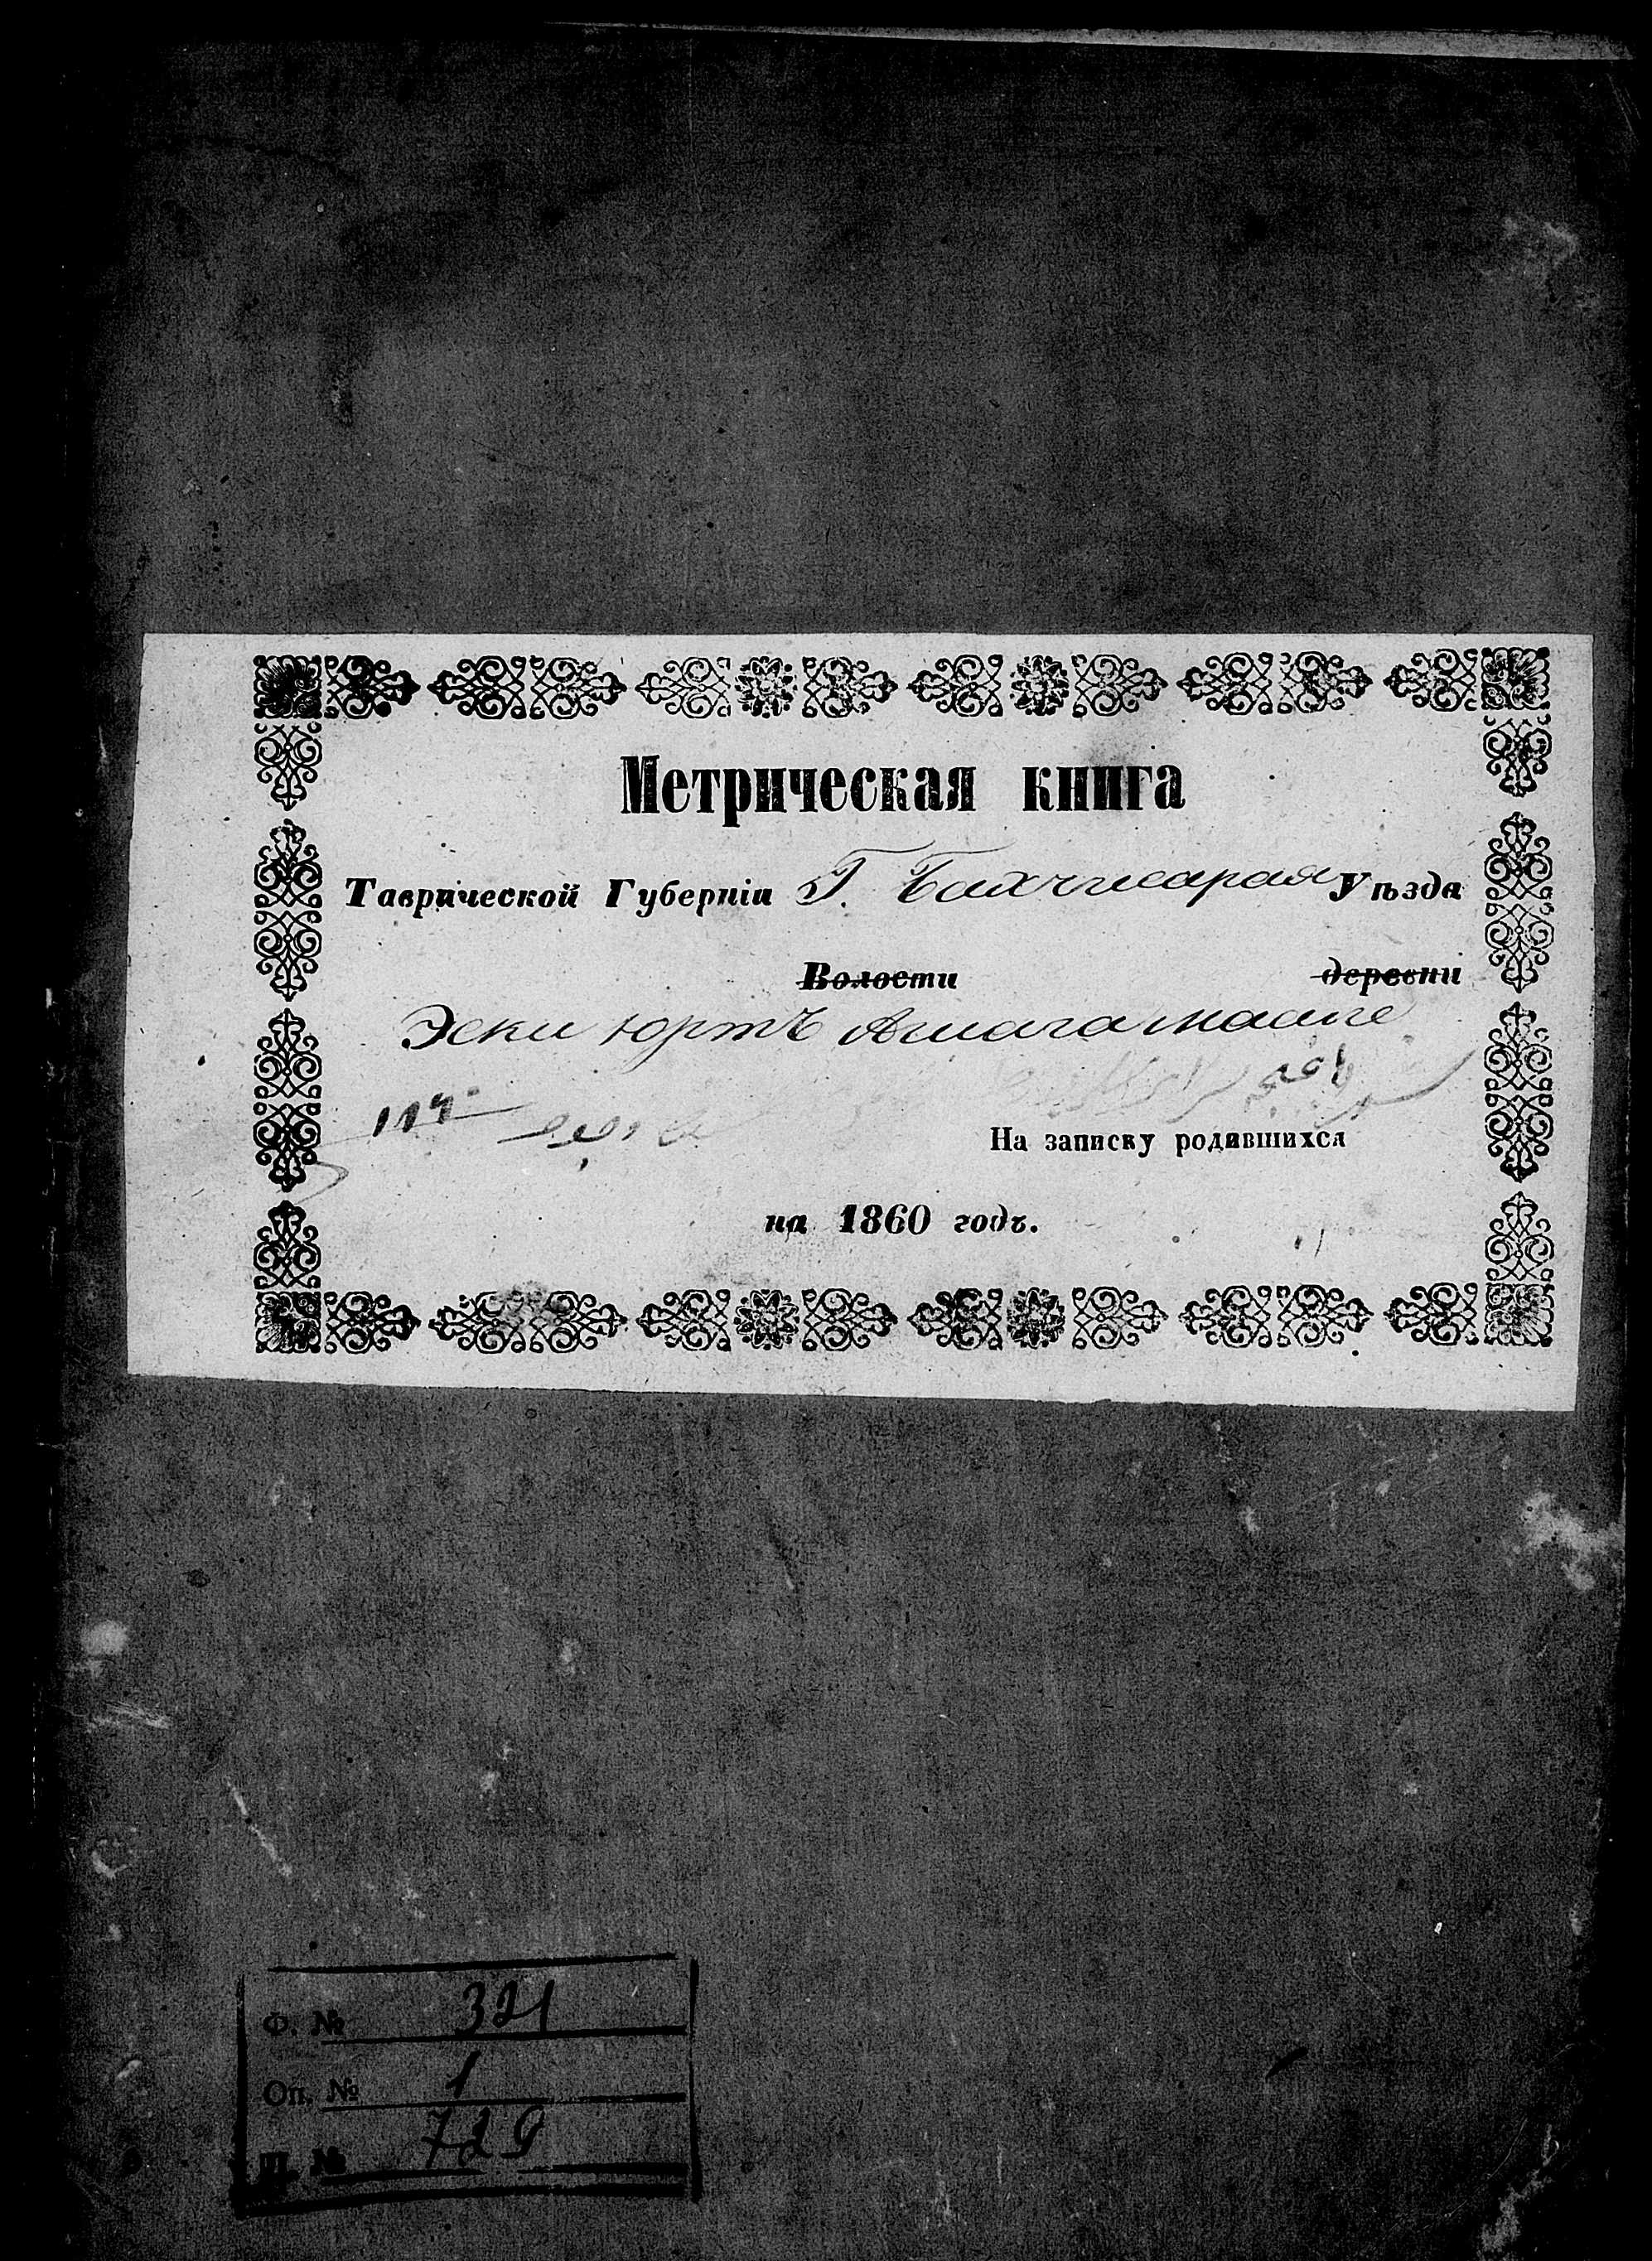 Метрическая книга
Таврической Губерніи Г. Бахчисарая Уѣзда
Волости деревни
Эски Юртъ Ашага маале
باغچه سراى
На записку родившихся
на 1860 годъ.
Ф. № 321
Оп. № 1
Д. № 729